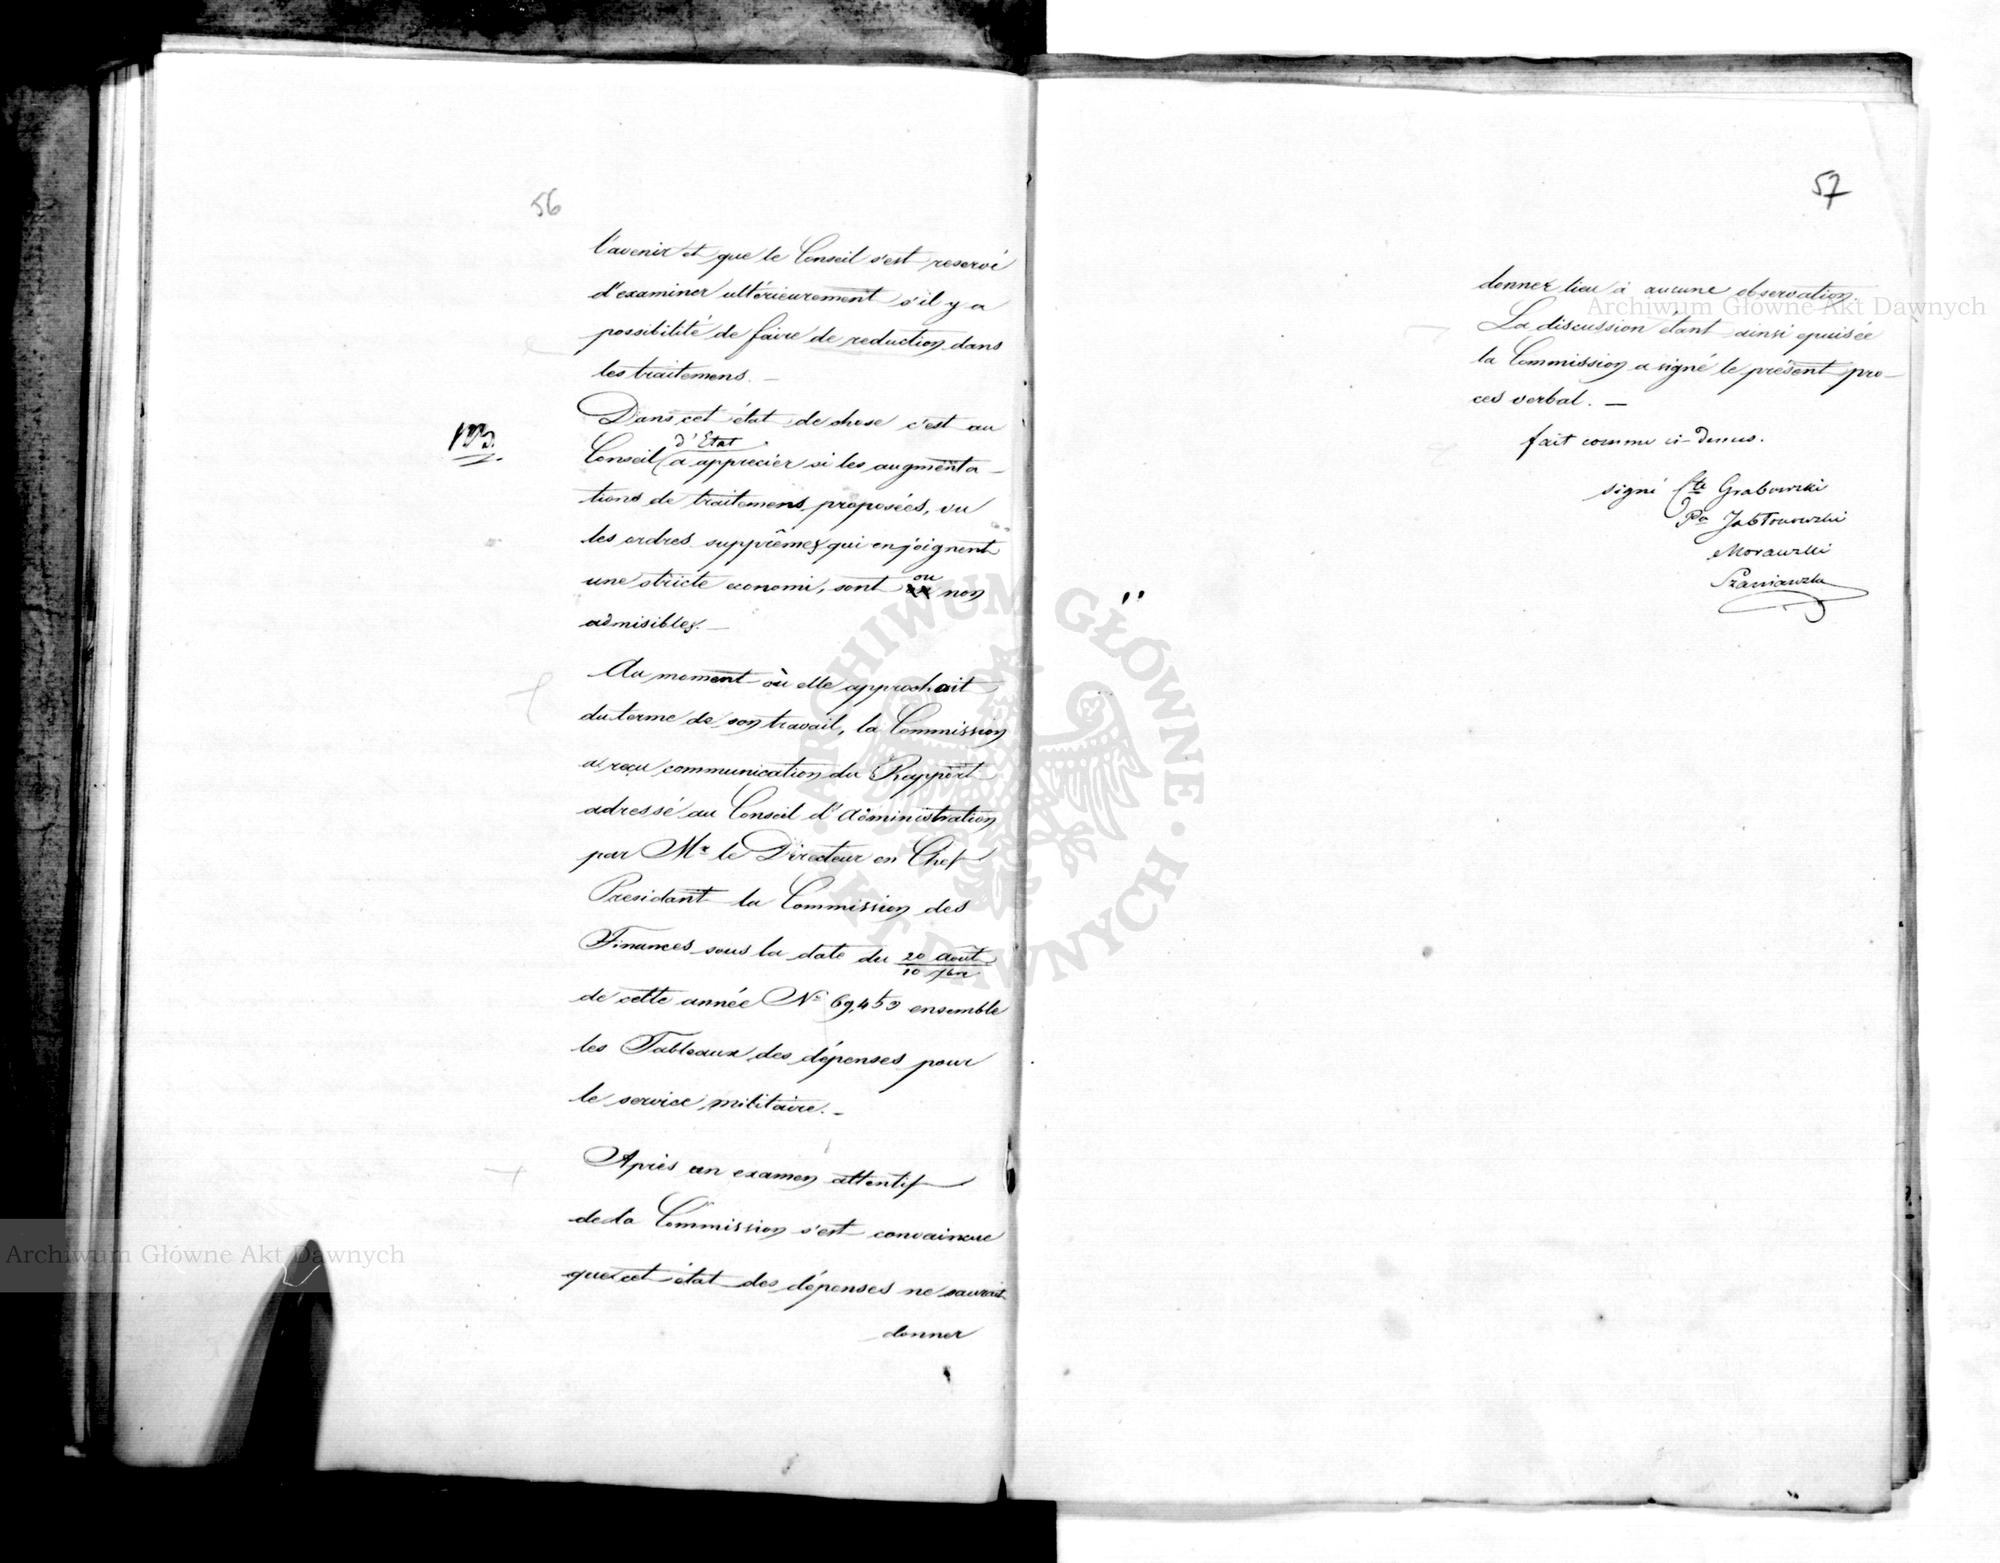 56
l'avenir et que le Conseil s'est reservé
d'examiner ultérieurement s'il y a
possibilité de faire de reduction dans
les traitemens. —
Dans cet état de chose c'est au
d'Etat
Conseil a apprecier si les augmenta-
tions de traitemens proposées, vu
les ordres supprêmes qui enjoignent
ou
une stricte economi, sont non
admisibles. —
Au moment où elle approchait
du terme de son travail, la Commission
a reçu communication du Rapport
adressé au Conseil d'Administration
par Mr le Directeur en Chef
Presidant la Commission des
Finances sous la date du 20 Août
10 7bre
de cette année No 69,453 ensemble
les Tableaux des dépenses pour
le service militaire. —
Après un examen attentif
de la Commission s'est convaincue
que cet état des dépenses ne saurait
donner
57
donner lieu à aucune observation.
La discussion étant ainsi epuisée
la Commission a signé le présent pro-
ces verbal. —
fait comme ci-dessus.
signé Cte Grabowski
Pce Jabłonowski
Morawski
Szaniawski
Archiwum Główne Akt Dawnych
Archiwum Główne Akt Dawnych
ARCHIWUM GŁÓWNE
AKT DAWNYCH